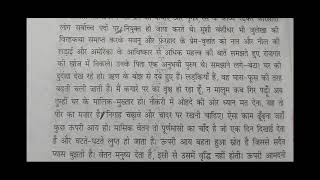 लोग सर्वोच्च पदों पर नियुक्त हो जाते थे। मुंशी वंशीधर भी जुलेखा की
विरहकथा समाप्त करके मजनू और फ़रहाद के प्रेम-वृत्तांत को नल और नील की
लड़ाई और अमेरिका के आविष्कार से अधिक महत्व की बातें समझते हुए रोजगार
की खोज में निकले। उनके पिता एक अनुभवी पुरुष थे। समझाने लगे-बेटा! घर की
दुर्दशा देख रहे हो। ऋण के बोझ से दबे हुए हैं। लड़कियाँ हैं, वह घास-फूस की तरह
बढ़ती चली जाती हैं। मैं कगारे पर का वृक्ष हो रहा हूँ, न मालूम कब गिर पड़ूँ। अब
तुम्हीं घर के मालिक-मुख्तार हो। नौकरी में ओहदे की ओर ध्यान मत देना, यह तो
पीर का मजार है। निगाह चढ़ावे और चादर पर रखनी चाहिए। ऐसा काम ढूँढ़ना जहाँ
कुछ ऊपरी आय हो। मासिक वेतन तो पूर्णमासी का चाँद है जो एक दिन दिखाई देता
है और घटते-घटते लुप्त हो जाता है। ऊपरी आय बहता हुआ स्रोत है जिससे सदैव
प्यास बुझती है। वेतन मनुष्य देता है, इसी से उसमें वृद्धि नहीं होती। ऊपरी आमदनी